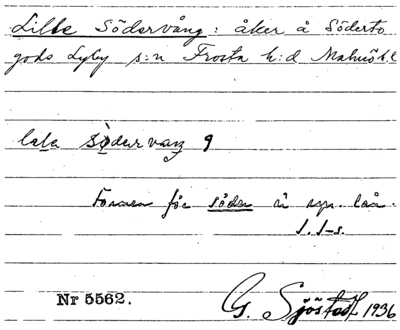 Lille Södervång: åker å Söderto
gods Lyby s:n Frosta h:d Malmöh.l
lela södervaŋ 9
Formen för södra är syn. lån.
I. I-s.
Nr 5562. G. Sjöstedt 1936